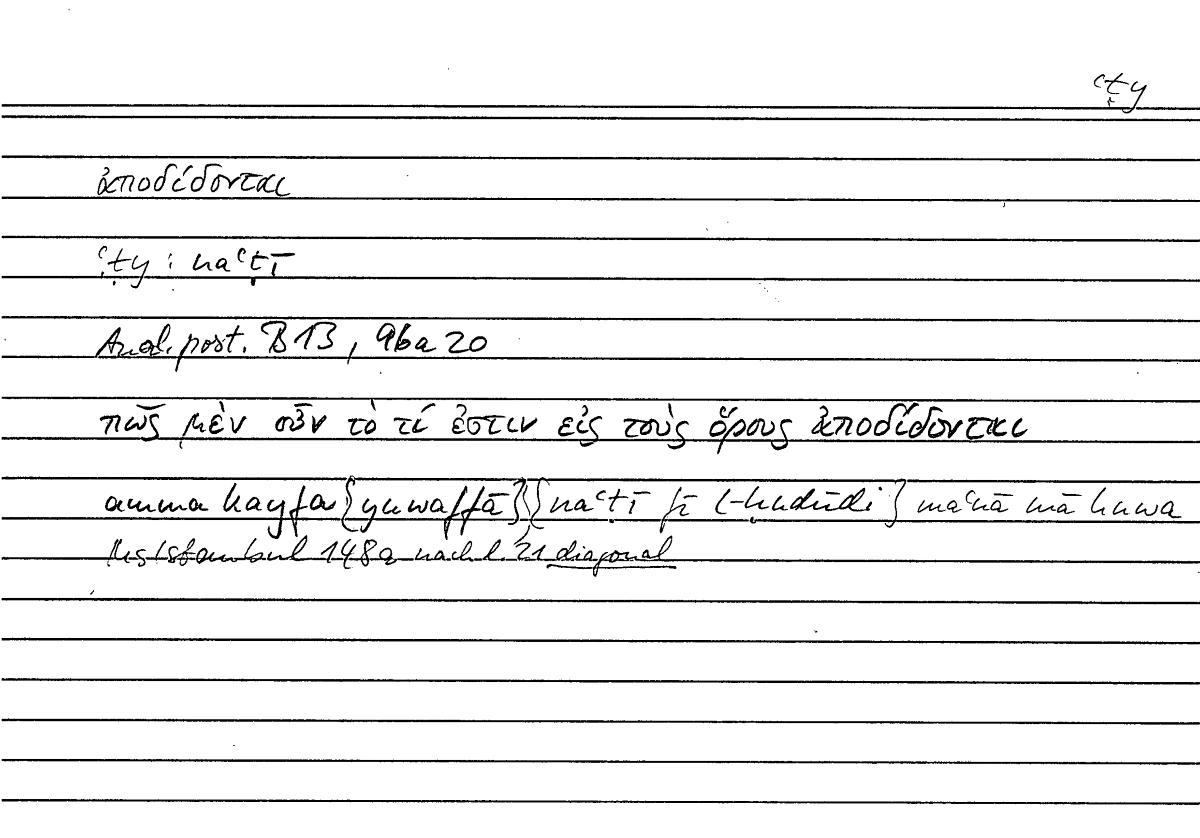 ʿṭy
ἀποδίδονται
ʿṭy : naʿṭī
Anal. post. B 13, 96a 20
πῶς μὲν οὖν τὸ τί ἐστιν εἰς τοὺς ὅρους ἀποδίδονται
amma kayfa {yuwaffā} {naʿṭī fī l-ḥudūdi} maʿnā mā huwa
Ms Istambul 148a nach l. 21 diagonal